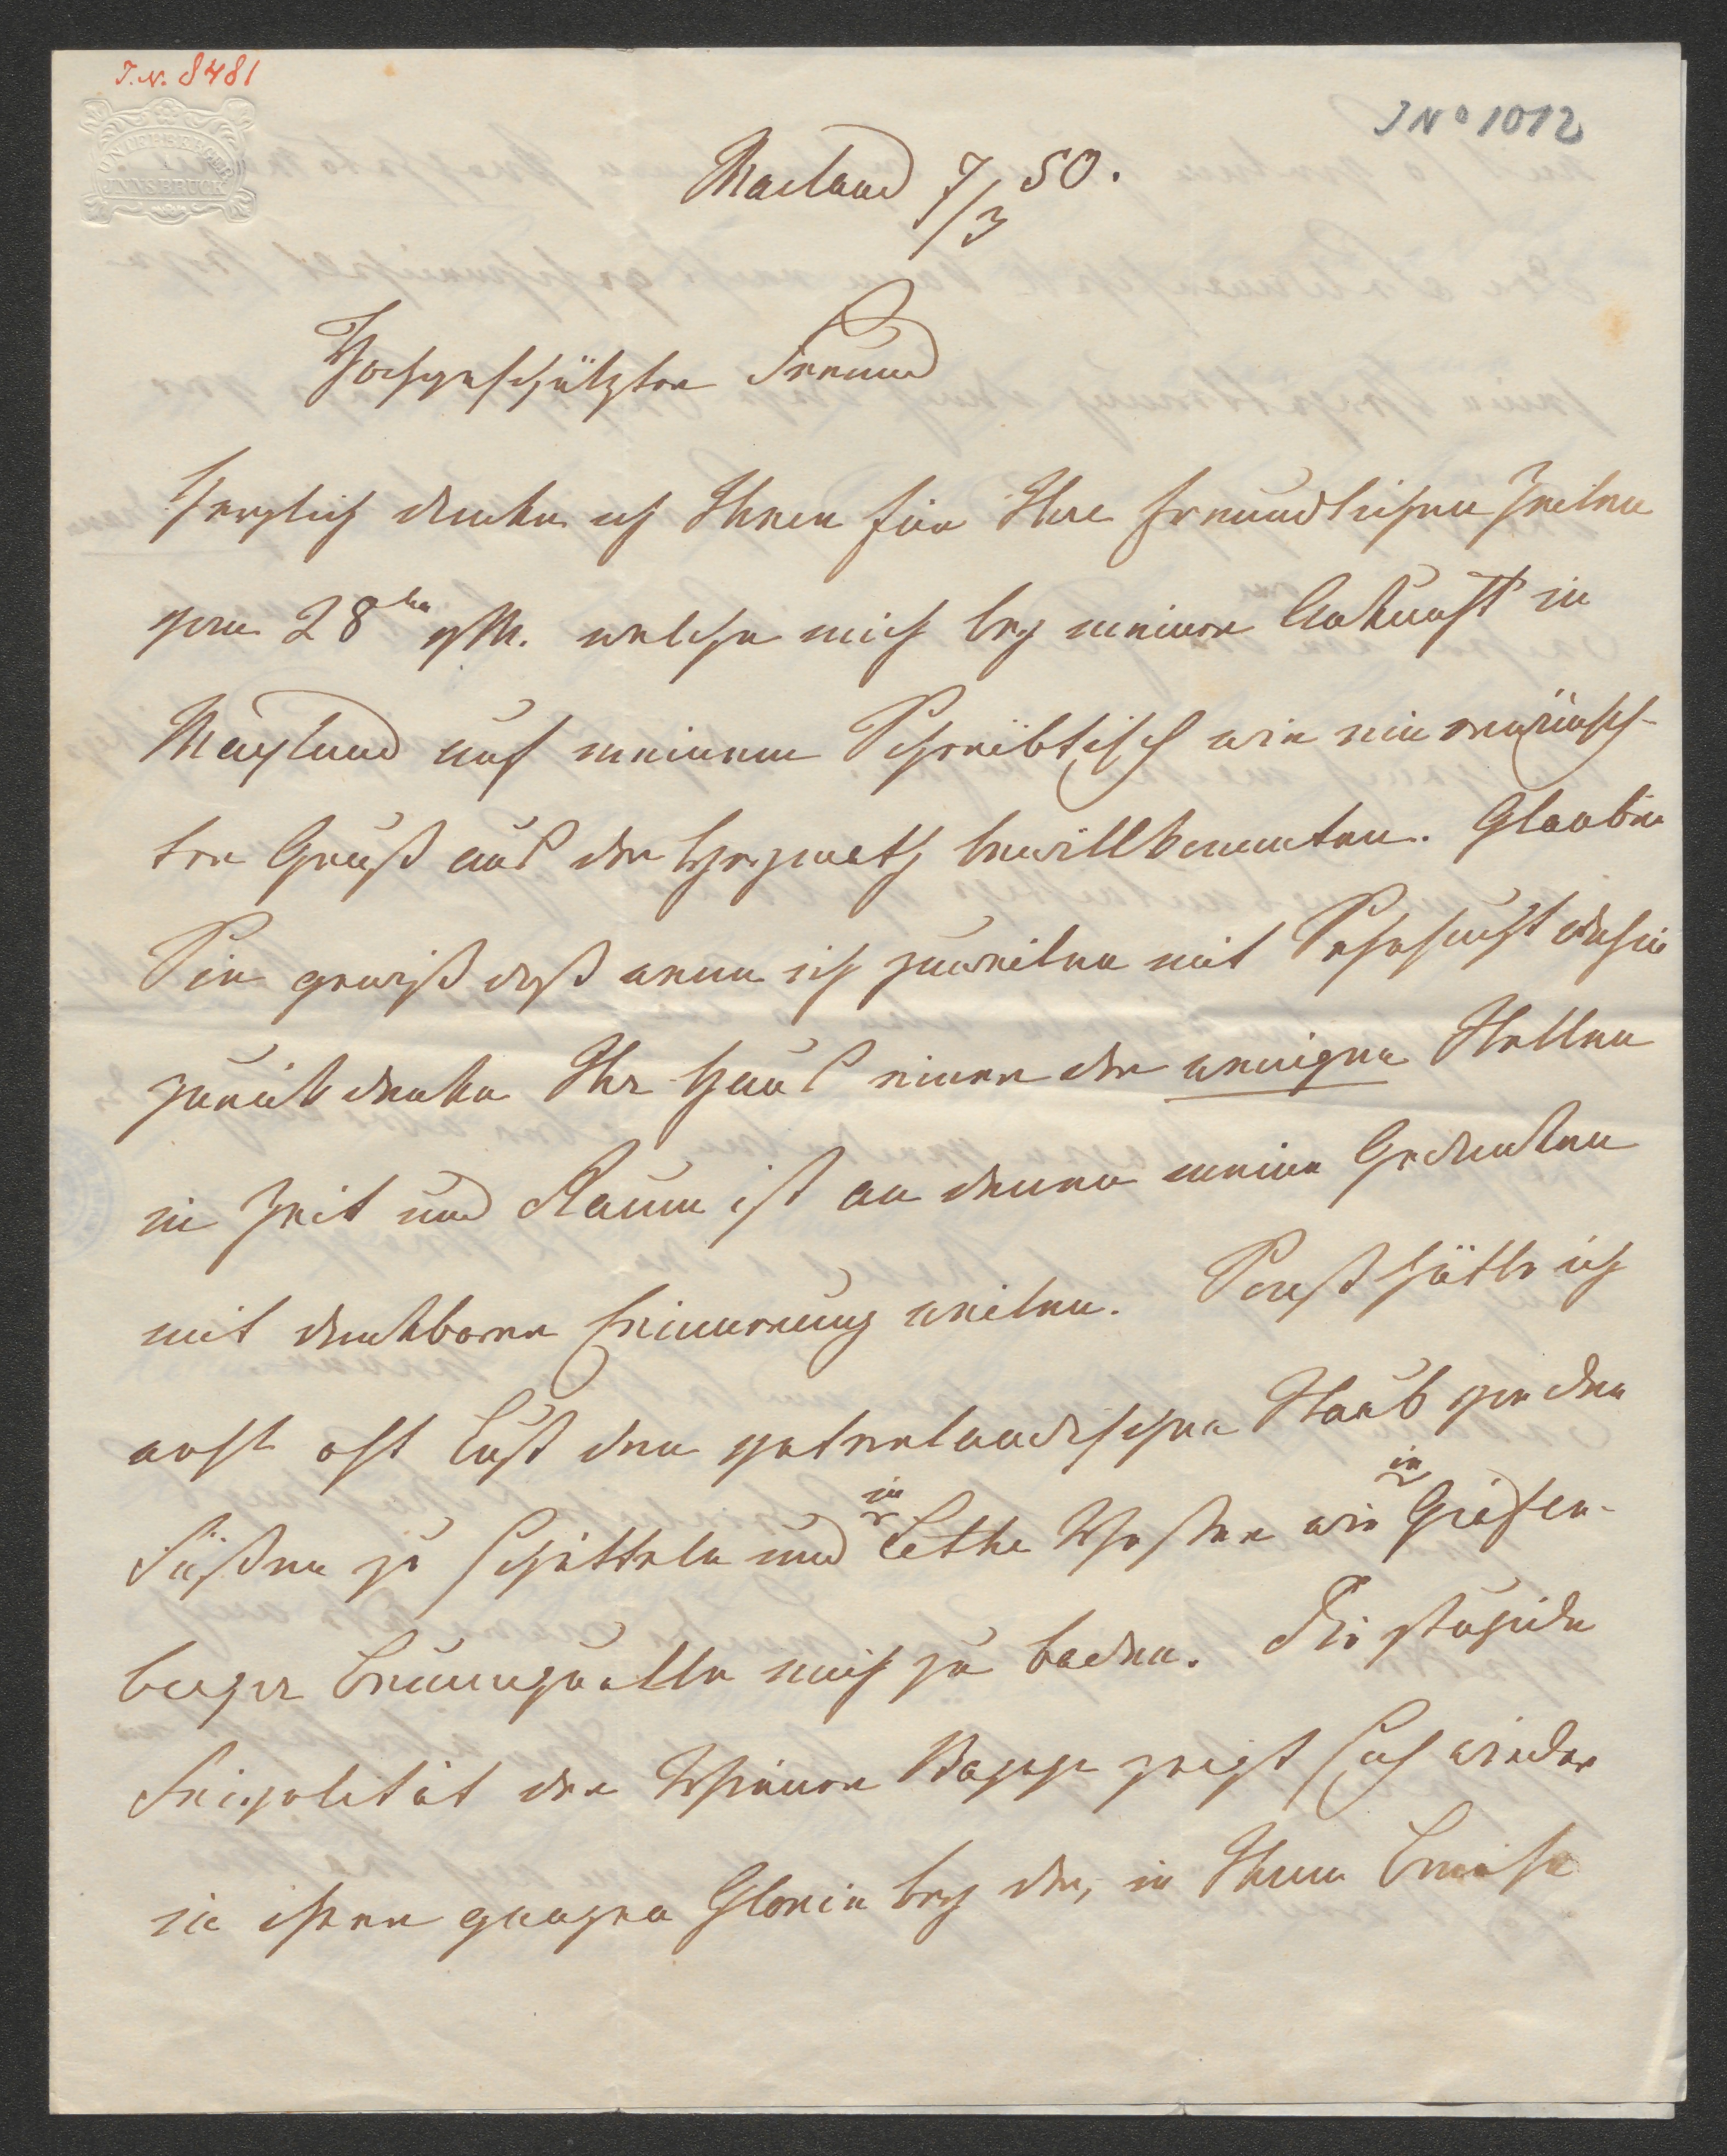 J.N. 8481
JNo 1012
UNTERBERGER
INNSBRUCK
Mailand 7/3 50.
Hochgeschätzter Freund
Herzlich danke ich Ihnen für Ihre freundlichen Zeilen
vom 28ten v M. welche mich bey meiner Ankunft in
Mayland auf meinem Schreibtisch wie ein erwünsch-
ter Gruß aus der Heymath bewillkommten. Glauben
Sie gewiß daß wenn ich zuweilen mit Sehnsucht dahin
zurück denke Ihr Haus einer der wenigen Stellen
in Zeit und Raum ist an denen meine Gedanken
mit dankbarer Erinnerung weilen. Sonst hätte ich
wohl oft Lust den vaterlandischen Staub von den
Füßen zu schütteln und in Lethe Wasser wie in Gräfen-
berger Brunnquelle mich zu baden. Die stupide
Frivolität der Wiener Bagage zeigt sich wieder
in ihrer ganzen Glorie bey der, in Ihrem Briefe